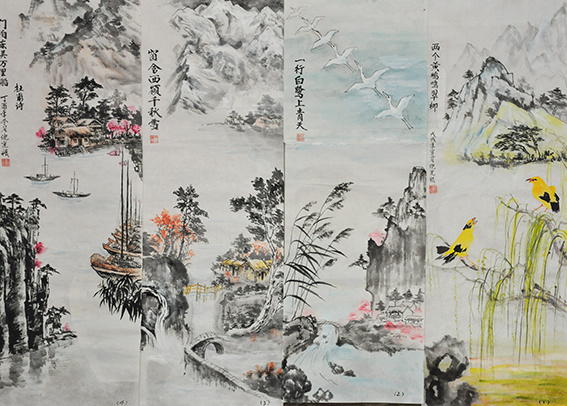 两个黄鹂鸣翠柳
一行白鹭上青天
窗含西嶺千秋雪
门泊东吴万里船
杜甫诗
(4)
(3)
(2)
(1)